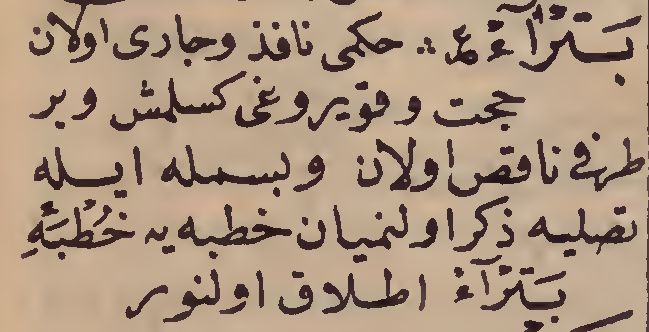 بَتْرَآءُ ع ∴ حكمى نافذ وجارى اولان
حجت وقويروغى كسلمش وبر
طرفى ناقص اولان وبسمله ايله
تصليه ذكر اولنميان خطبه يه خُطْبَهِٔ
بَتْرَآءُ اطلاق اولنور